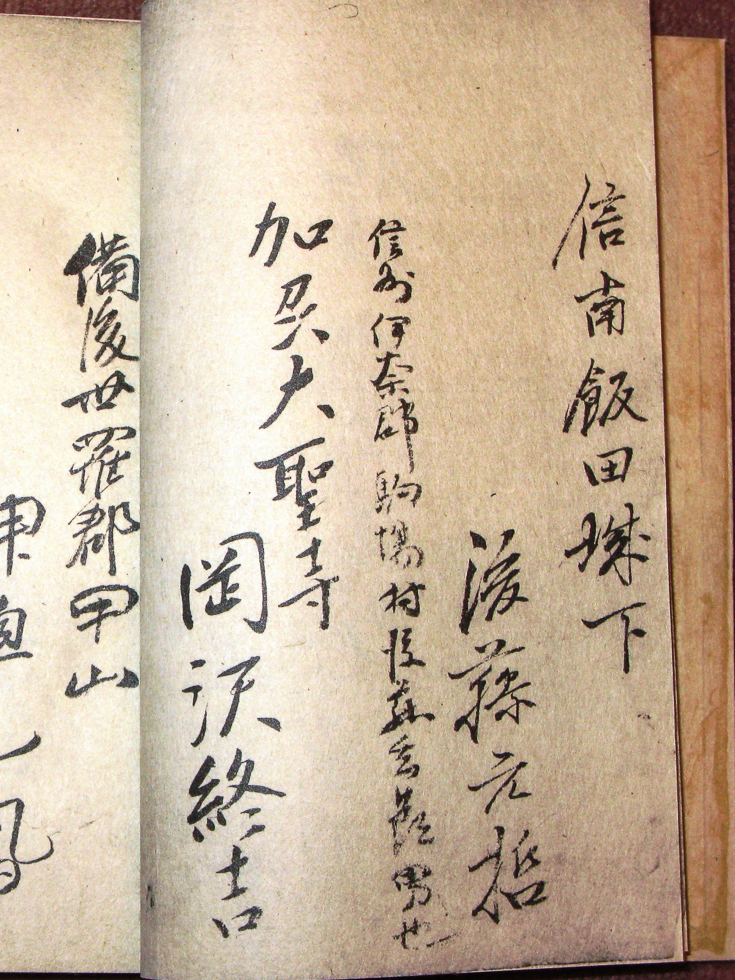 信南飯田城下
後藤元哲
信州伊奈郡駒場村後藤玄男也
加刕大聖寺
岡沢終吉
備後世羅郡甲山